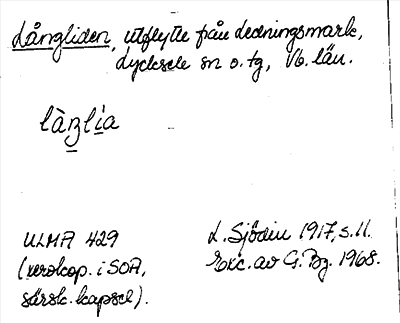 Långliden, utflytte från dedningsmark,
Lycksele sn o. tg, Vb. län.
làŋlia
ULMA 429
(xerokop. i SOA,
särsk. kapsel).
L. Sjödin 1917, s. 11.
Exc. av G. Bg. 1968.